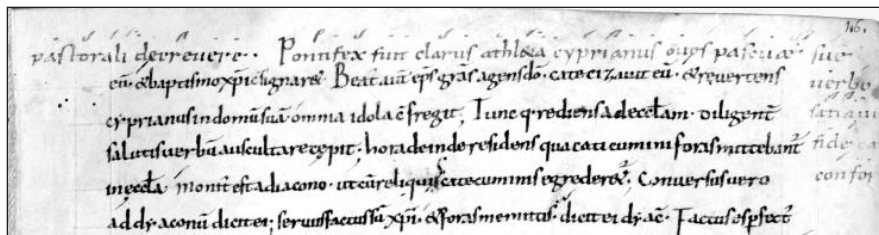 116.
pastorali decrevere.. Pontifex fuit clarus athleta cyprianus
eū. & baptismo xp̄i signare&. Beat' aut̄ ep̄s grās agens dō. catecizavit eū. & revertens
cyprianus in domū suā omnia idola c̄fregit; Tunc q· rediens ad eccl̄am. diligent̄
salutis verbū auscultare cępit. hora deinde residens qua caticumini foras mittebant'
in eccl̄a monit' est a diacono. ut cū reliquis catecuminis egrederet'. Conversus vero
ad dyaconū dicit ei; servus factus sū xp̄i. & foras me mittis. dicit ei dyac̄. Factus es p̄fect'
sue
verbo
fide ca
confor